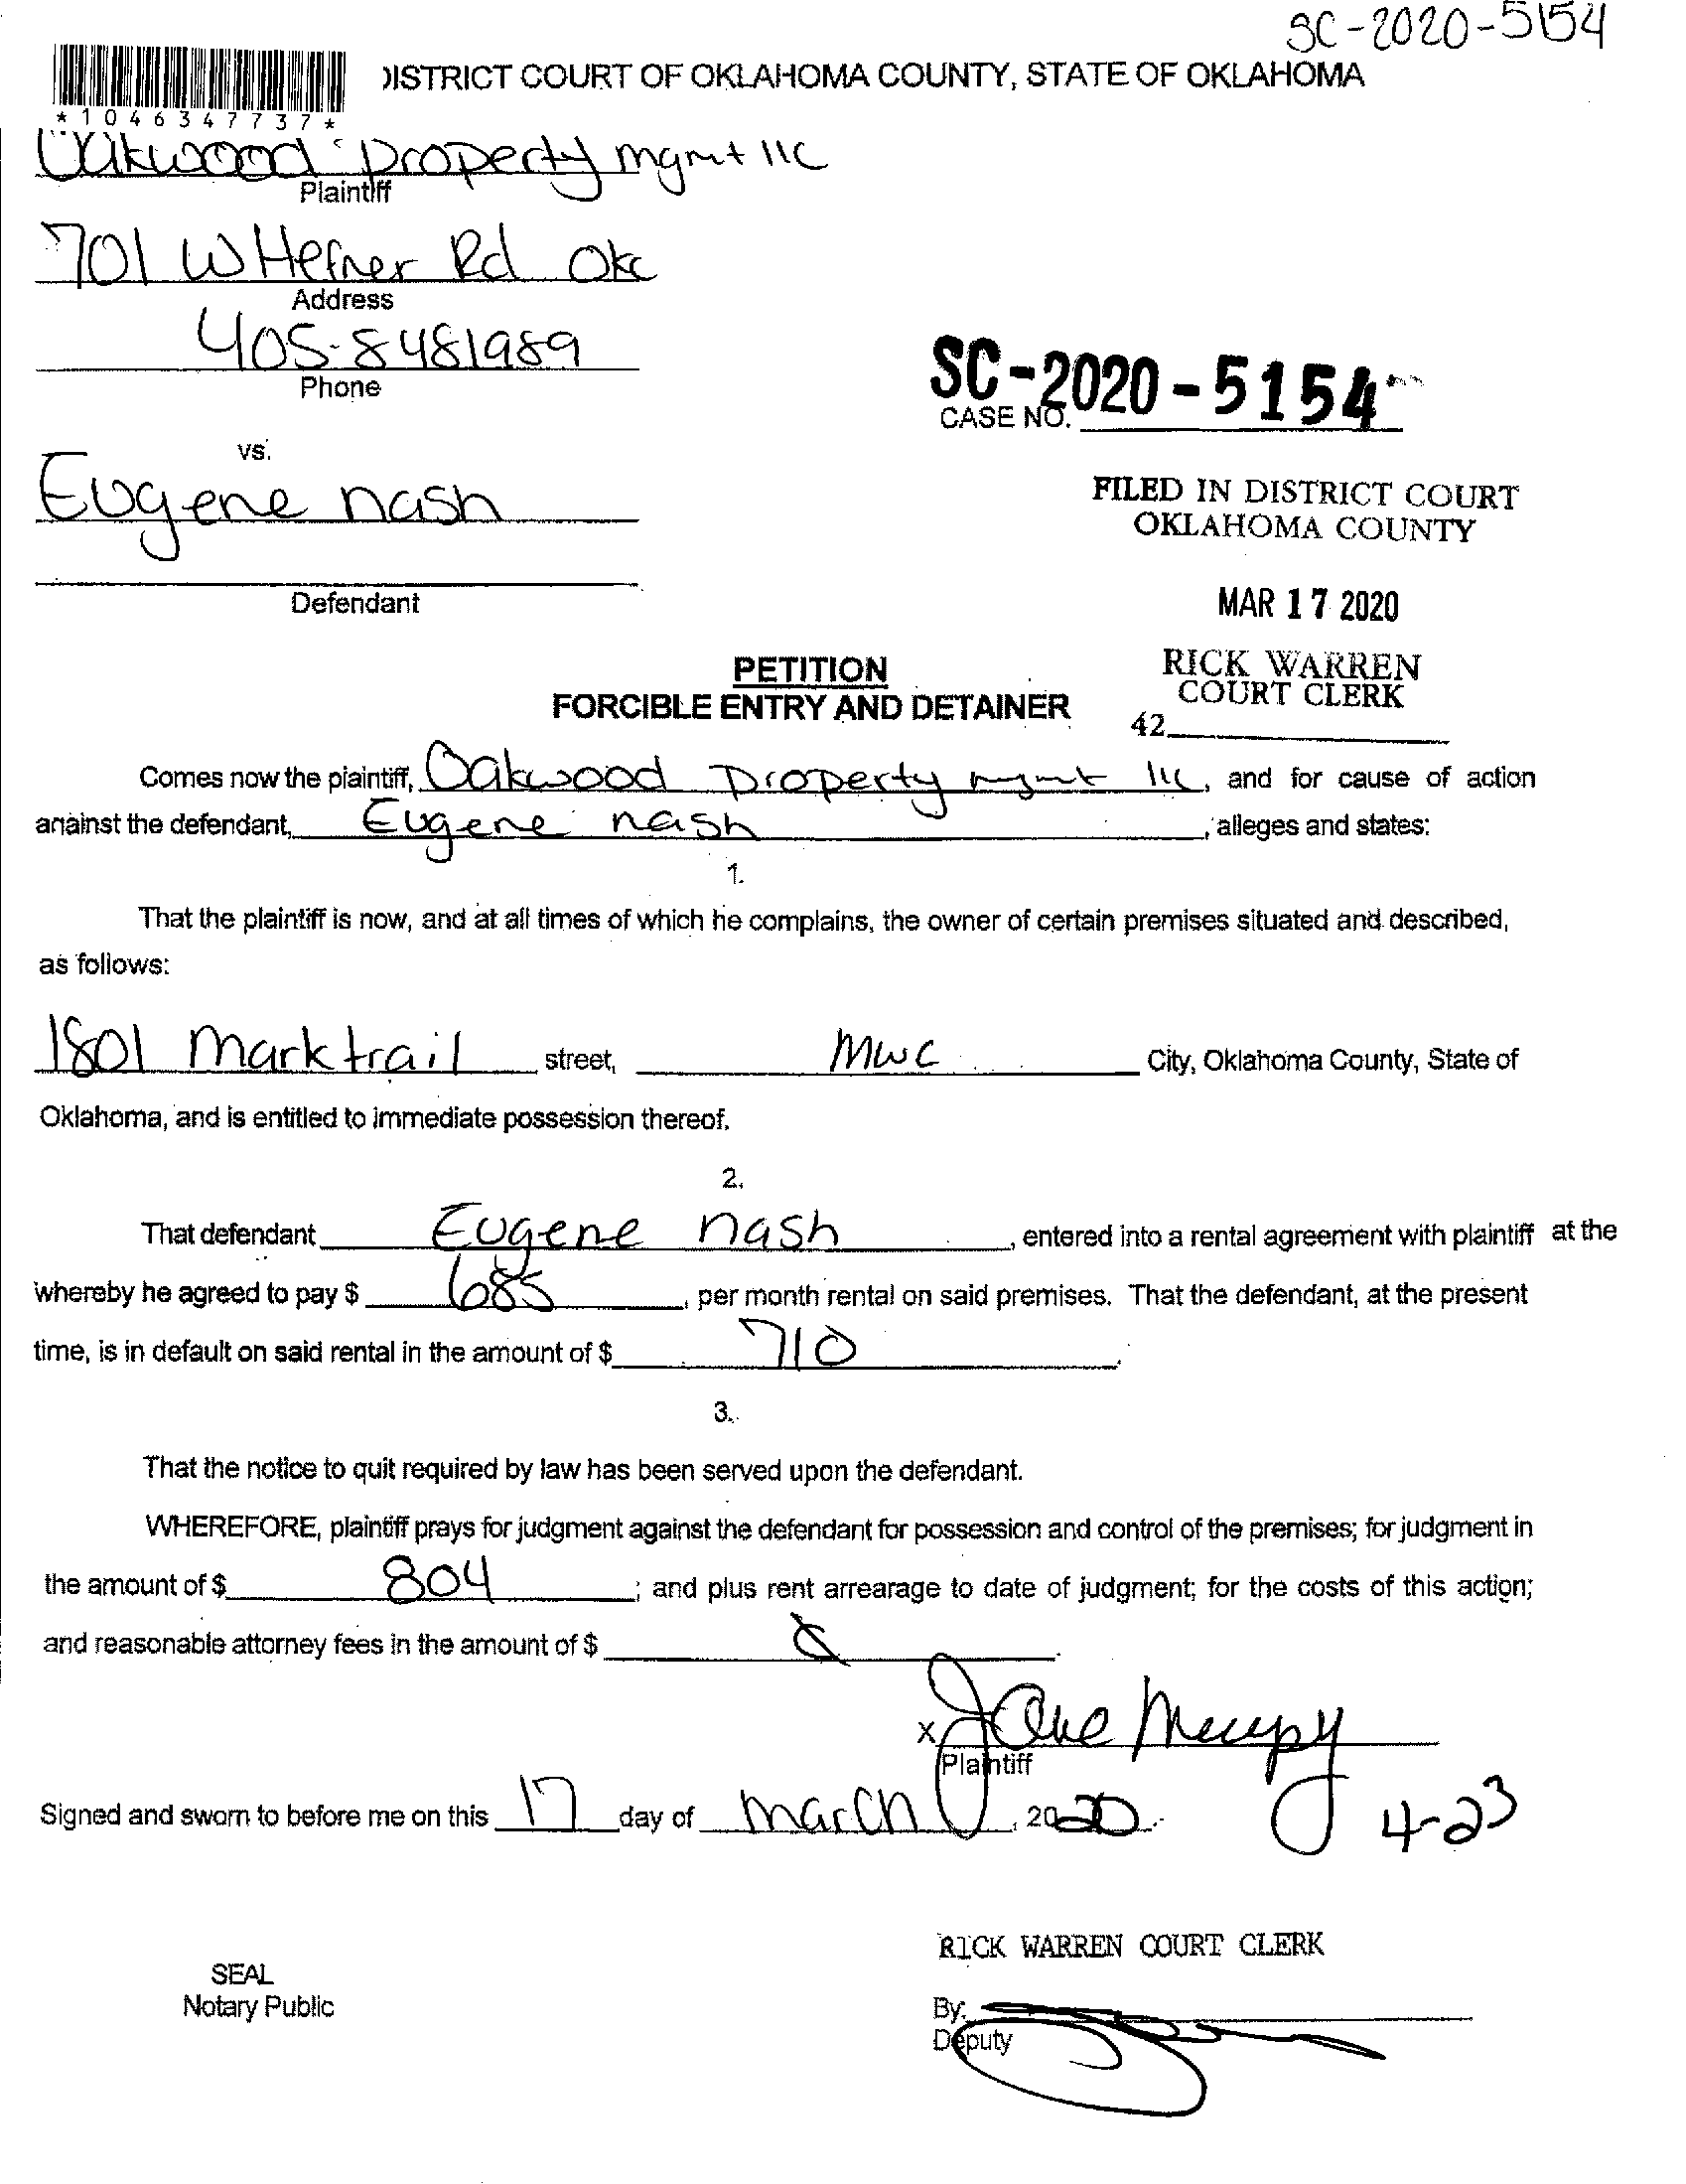 SC-2020-5154
DISTRICT COURT OF OKLAHOMA COUNTY, STATE OF OKLAHOMA
*1046347737*
Oakwood property mgmt llc
Plaintiff
701 W Hefner Rd Okc
Address
405-8481989
Phone
SC-2020-5154
CASE NO.
vs.
Eugene nash
FILED IN DISTRICT COURT
OKLAHOMA COUNTY
Defendant
MAR 17 2020
PETITION
FORCIBLE ENTRY AND DETAINER
RICK WARREN
COURT CLERK
42
Comes now the plaintiff, Oakwood property mgmt llc, and for cause of action
against the defendant, Eugene nash, alleges and states:
1.
That the plaintiff is now, and at all times of which he complains, the owner of certain premises situated and described,
as follows:
1801 Mark trail street, MWC City, Oklahoma County, State of
Oklahoma, and is entitled to immediate possession thereof.
2.
That defendant Eugene nash, entered into a rental agreement with plaintiff at the
whereby he agreed to pay $ 685, per month rental on said premises. That the defendant, at the present
time, is in default on said rental in the amount of $ 710.
3.
That the notice to quit required by law has been served upon the defendant.
WHEREFORE, plaintiff prays for judgment against the defendant for possession and control of the premises; for judgment in
the amount of $ 804; and plus rent arrearage to date of judgment; for the costs of this action;
and reasonable attorney fees in the amount of $
X Jane
Plaintiff
Signed and sworn to before me on this 17 day of march, 2020.
4-23
RICK WARREN COURT CLERK
SEAL
Notary Public
By:
Deputy